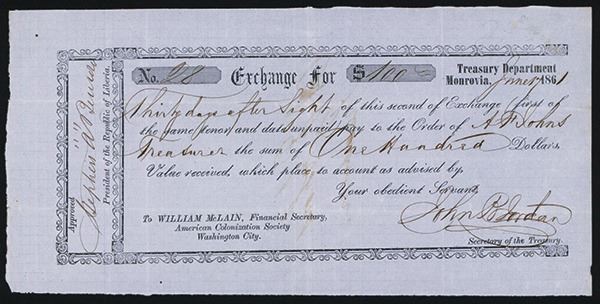 No. 28 Exchange For $100=
Treasury Department
Monrovia, 1861
Thirty days after Sight of this second of Exchange (first of
the same tenor and date unpaid) pay to the Order of
Treasurer the sum of One Hundred Dollars.
Value received, which place to account as advised by,
Your obedient Servant,
To WILLIAM McLAIN, Financial Secretary,
American Colonization Society
Washington City.
John B Jordan
Secretary of the Treasury.
Approved
Stephen A Benson
President of the Republic of Liberia.